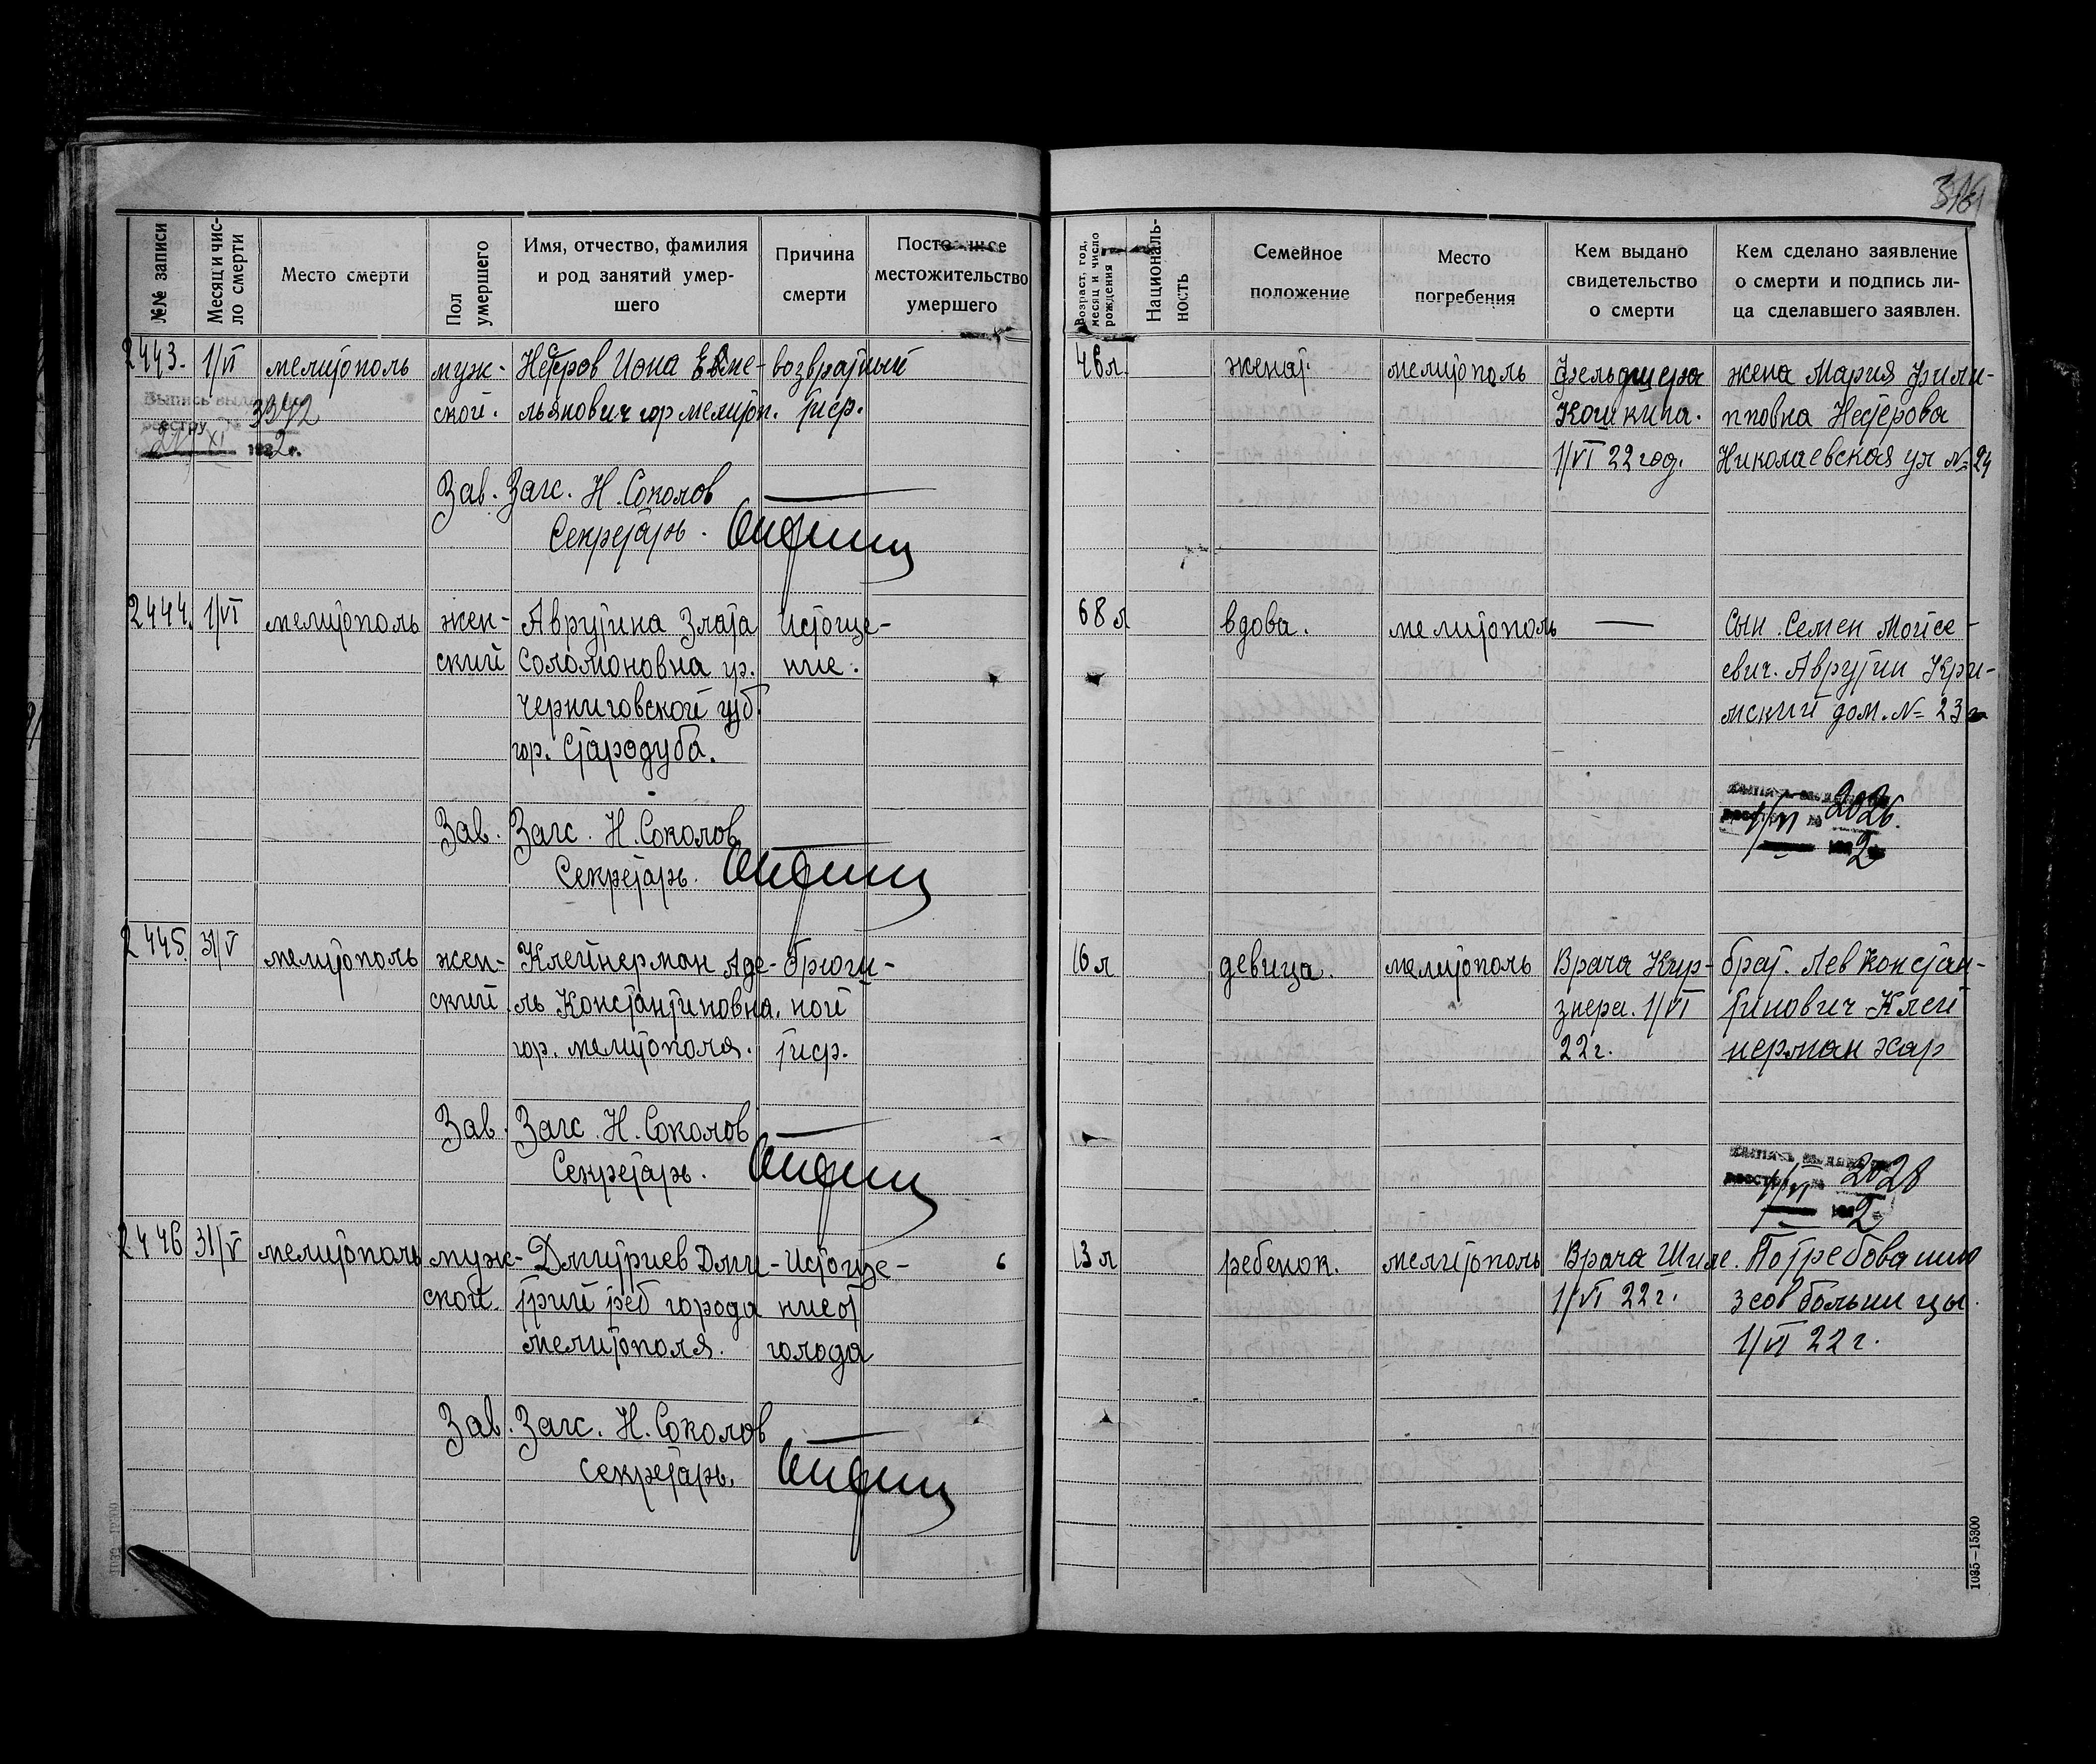 316
№№ записи
Месяц и чис-
ло смерти
Место смерти
Пол
умершего
Имя, отчество, фамилия
и род занятий умер-
шего
Причина
смерти
местожительство
умершего
Возраст, год,
месяц и число
рождения
Националь-
ность
Семейное
положение
Место
погребения
Кем выдано
свидетельство
о смерти
Кем сделано заявление
о смерти и подпись ли-
ца сделавшего заявлен.
2443.
1/VI
мелитополь
муж-
ской.
Нестров Иона Евме-
льянович гор мелитоп.
возвратный
тиф.
46 л.
женат.
мелитополь
Фельдшера
Кошкина.
1/VI 22 год.
жена Мария Фили-
пповна Нестерова
Николаевская ул № 24
Выпись выд
реестру № 3392
XI 1922 г.
Зав. Загс. Н. Соколов
Секретарь.
2444.
1/VI
мелитополь
жен-
ский
Аврутина Злата
Соломоновна ур.
Черниговской губ.
гор. Стародуба.
Истоще-
ние.
68 л
вдова.
мелитополь
—
Сын. Семен Мойсе-
евич. Аврутин Кри-
мский дом. № 23
2026.
1/VI 1922
Зав. Загс. Н. Соколов
Секретарь.
2445.
31/V
мелитополь
жен-
ский.
Клейнерман Аде-
ль Константиновна.
гор. мелитополя.
брюш-
ной
тиф.
16 л
девица.
мелитополь
Врача Кир-
знера. 1/VI
22 г.
брат. Лев Констан-
тинович Клей
нерман хар
2028
1/VI 1922
Зав. Загс. Н. Соколов
Секретарь.
2446
31/V
мелитополь
муж-
ской.
Дмитриев Дми-
трий реб города
мелитополя.
Истоще-
ние от
голода
13 л
ребенок.
мелитополь
Врача
1/VI 22 г.
По требованию
3 сов больницы.
1/VI 22 г.
Зав. Загс. Н. Соколов
секретарь.
1035—15300